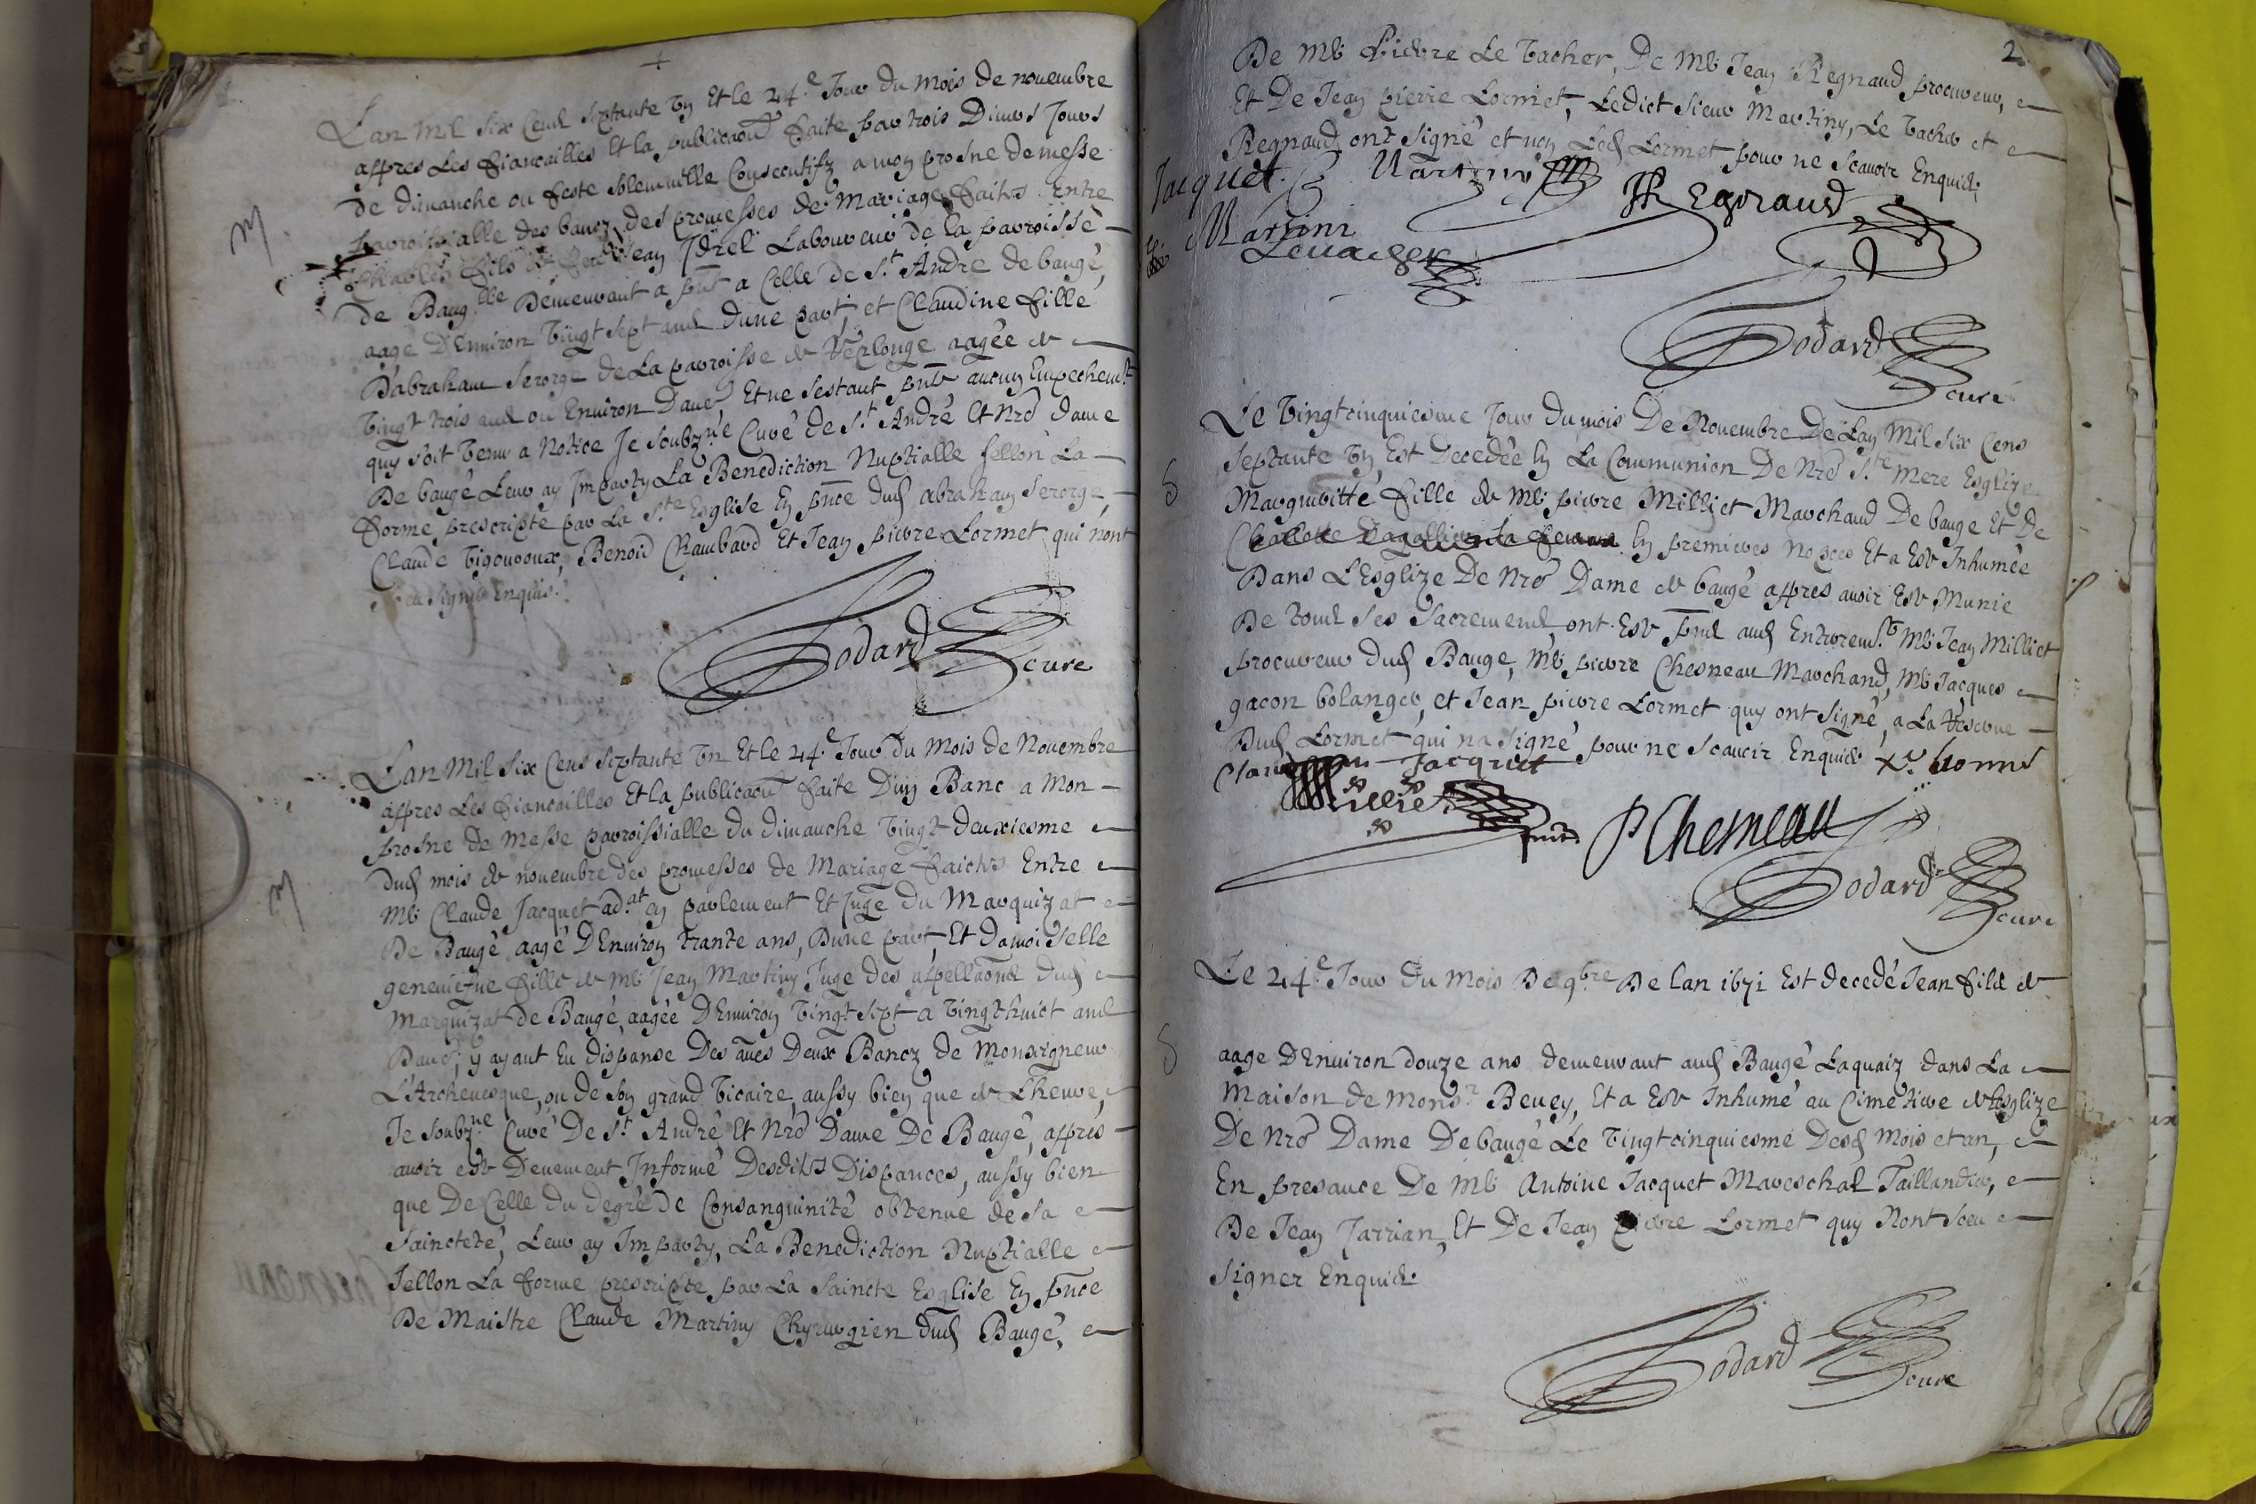 Lan Mil six Cens septante Un Et le 24.e Jour du Mois de novembre
appres Les fiancailles Et la publicaon faite par trois Divers Jours
de dimanche ou feste solemnelle Consecutifz a mon prosne de messe
parroissialle des bancz des promesses de Mariage faites Entre
Charles fils de Jean Ydrel Laboureur de la parroisse
de Baug Demeurant a pnt a Celle de St André de baugé
aagé D'Environ Vingt sept ans d'une part, et Claudine fille
D'abraham Serorge de La parroisse de Replonge aagée de
Vingt trois ans ou Environ D'autre Et ne s'estant pnte aucun Empechemt
quy soit Venu a Notice Je soubzné Curé de St André Et Nre dame
De baugé Leur ay Imparty La Benediction Nuptialle sellon La
forme prescripte par La Ste Esglise En pnce dud abraham Serorge,
Claude Tigouroux, Benoid Chambard Et Jean pierre Lormet qui n'ont
sceu signer Enquis.
Godard curé
Lan Mil six Cens septante Un Et le 24.e Jour du Mois de Novembre
appres Les fiancailles Et la publicaon faite D'un Banc a Mon
prosne de Messe parroissialle du dimanche Vingt deuxiesme
dud mois de novembre des promesses de Mariage faictes Entre
Mr Claude Jacquet ad.at en parlement Et Juge du Marquizat
De Baugé aagé D'Environ trante ans, D'une part, Et damoiselle
genevieve fille de Mr Jean Martiny Juge des appellaons dud
Marquizat de Baugé, aagée D'Environ Vingt sept a Vingt huict ans
D'autre, y ayant Eu dispanse Des aues Deux Bancz de Monseigneur
L'Archevesque, ou de son grand Vicaire, aussy bien que de L'heure,
Je soubzné Curé De St André Et Nre Dame De Baugé, appres
avoir esté Deuement Informé Desdites Dispances, aussy bien
que De Celle du degré de Consanguinité obtenue de sa
saincteté, Leur ay Imparty, La Benediction Nuptialle
sellon La forme prescripte par La Saincte Esglise En pnce
De Maistre Claude Martiny Chyrurgien dud Baugé,
2
De Mr Pierre Le Vacher, De Mr Jean Regnaud procureur,
Et De Jean pierre Lormet, Ledict sieur Martiny, Le Vacher et
Regnaud ont signé et non Led Lormet pour ne scavoir Enquis.
Jacquet Martiny
JRegnaud
Martini
Levacher
Godard curé
Le Vingtcinquiesme Jour du mois De Novembre De L'an Mil six Cens
septante Un Est Decedée En La Communion De Nre Ste Mere Esglize
Margueritte fille de Mr pierre Milliet Marchand De baugé Et De
En premieres nopces Et a Esté Inhumée
Dans L'Esglize De Nre Dame de baugé appres avoir Esté Munie
De tous ses sacremens, ont Esté pns aud Enterremt Mr Jean Milliet
procureur dud Baugé, Mr pierre Chesneau Marchand, Mr Jacques
gacon bolanger, et Jean pierre Lormet quy ont signé, a La Reserve
Dud Lormet qui n'a signé pour ne scavoir Enquis
Jacquet
Milliet
PChesneau
Godard curé
Le 24.e Jour du Mois De 9bre De Lan 1671 Est decedé Jean fils de
aagé D'Environ douze ans demeurant aud Baugé Laquaiz dans La
Maison de Monsr Bevey, Et a Esté Inhumé au Cimetiere de L'Esglize
De Nre Dame De baugé Le Vingtcinquiesme Desd Mois et an,
En presance De Mr Antoine Jacquet Mareschal Taillandier,
De Jean Jarrian, Et De Jean Pierre Lormet quy N'ont sceu
signer Enquis
Godard curé